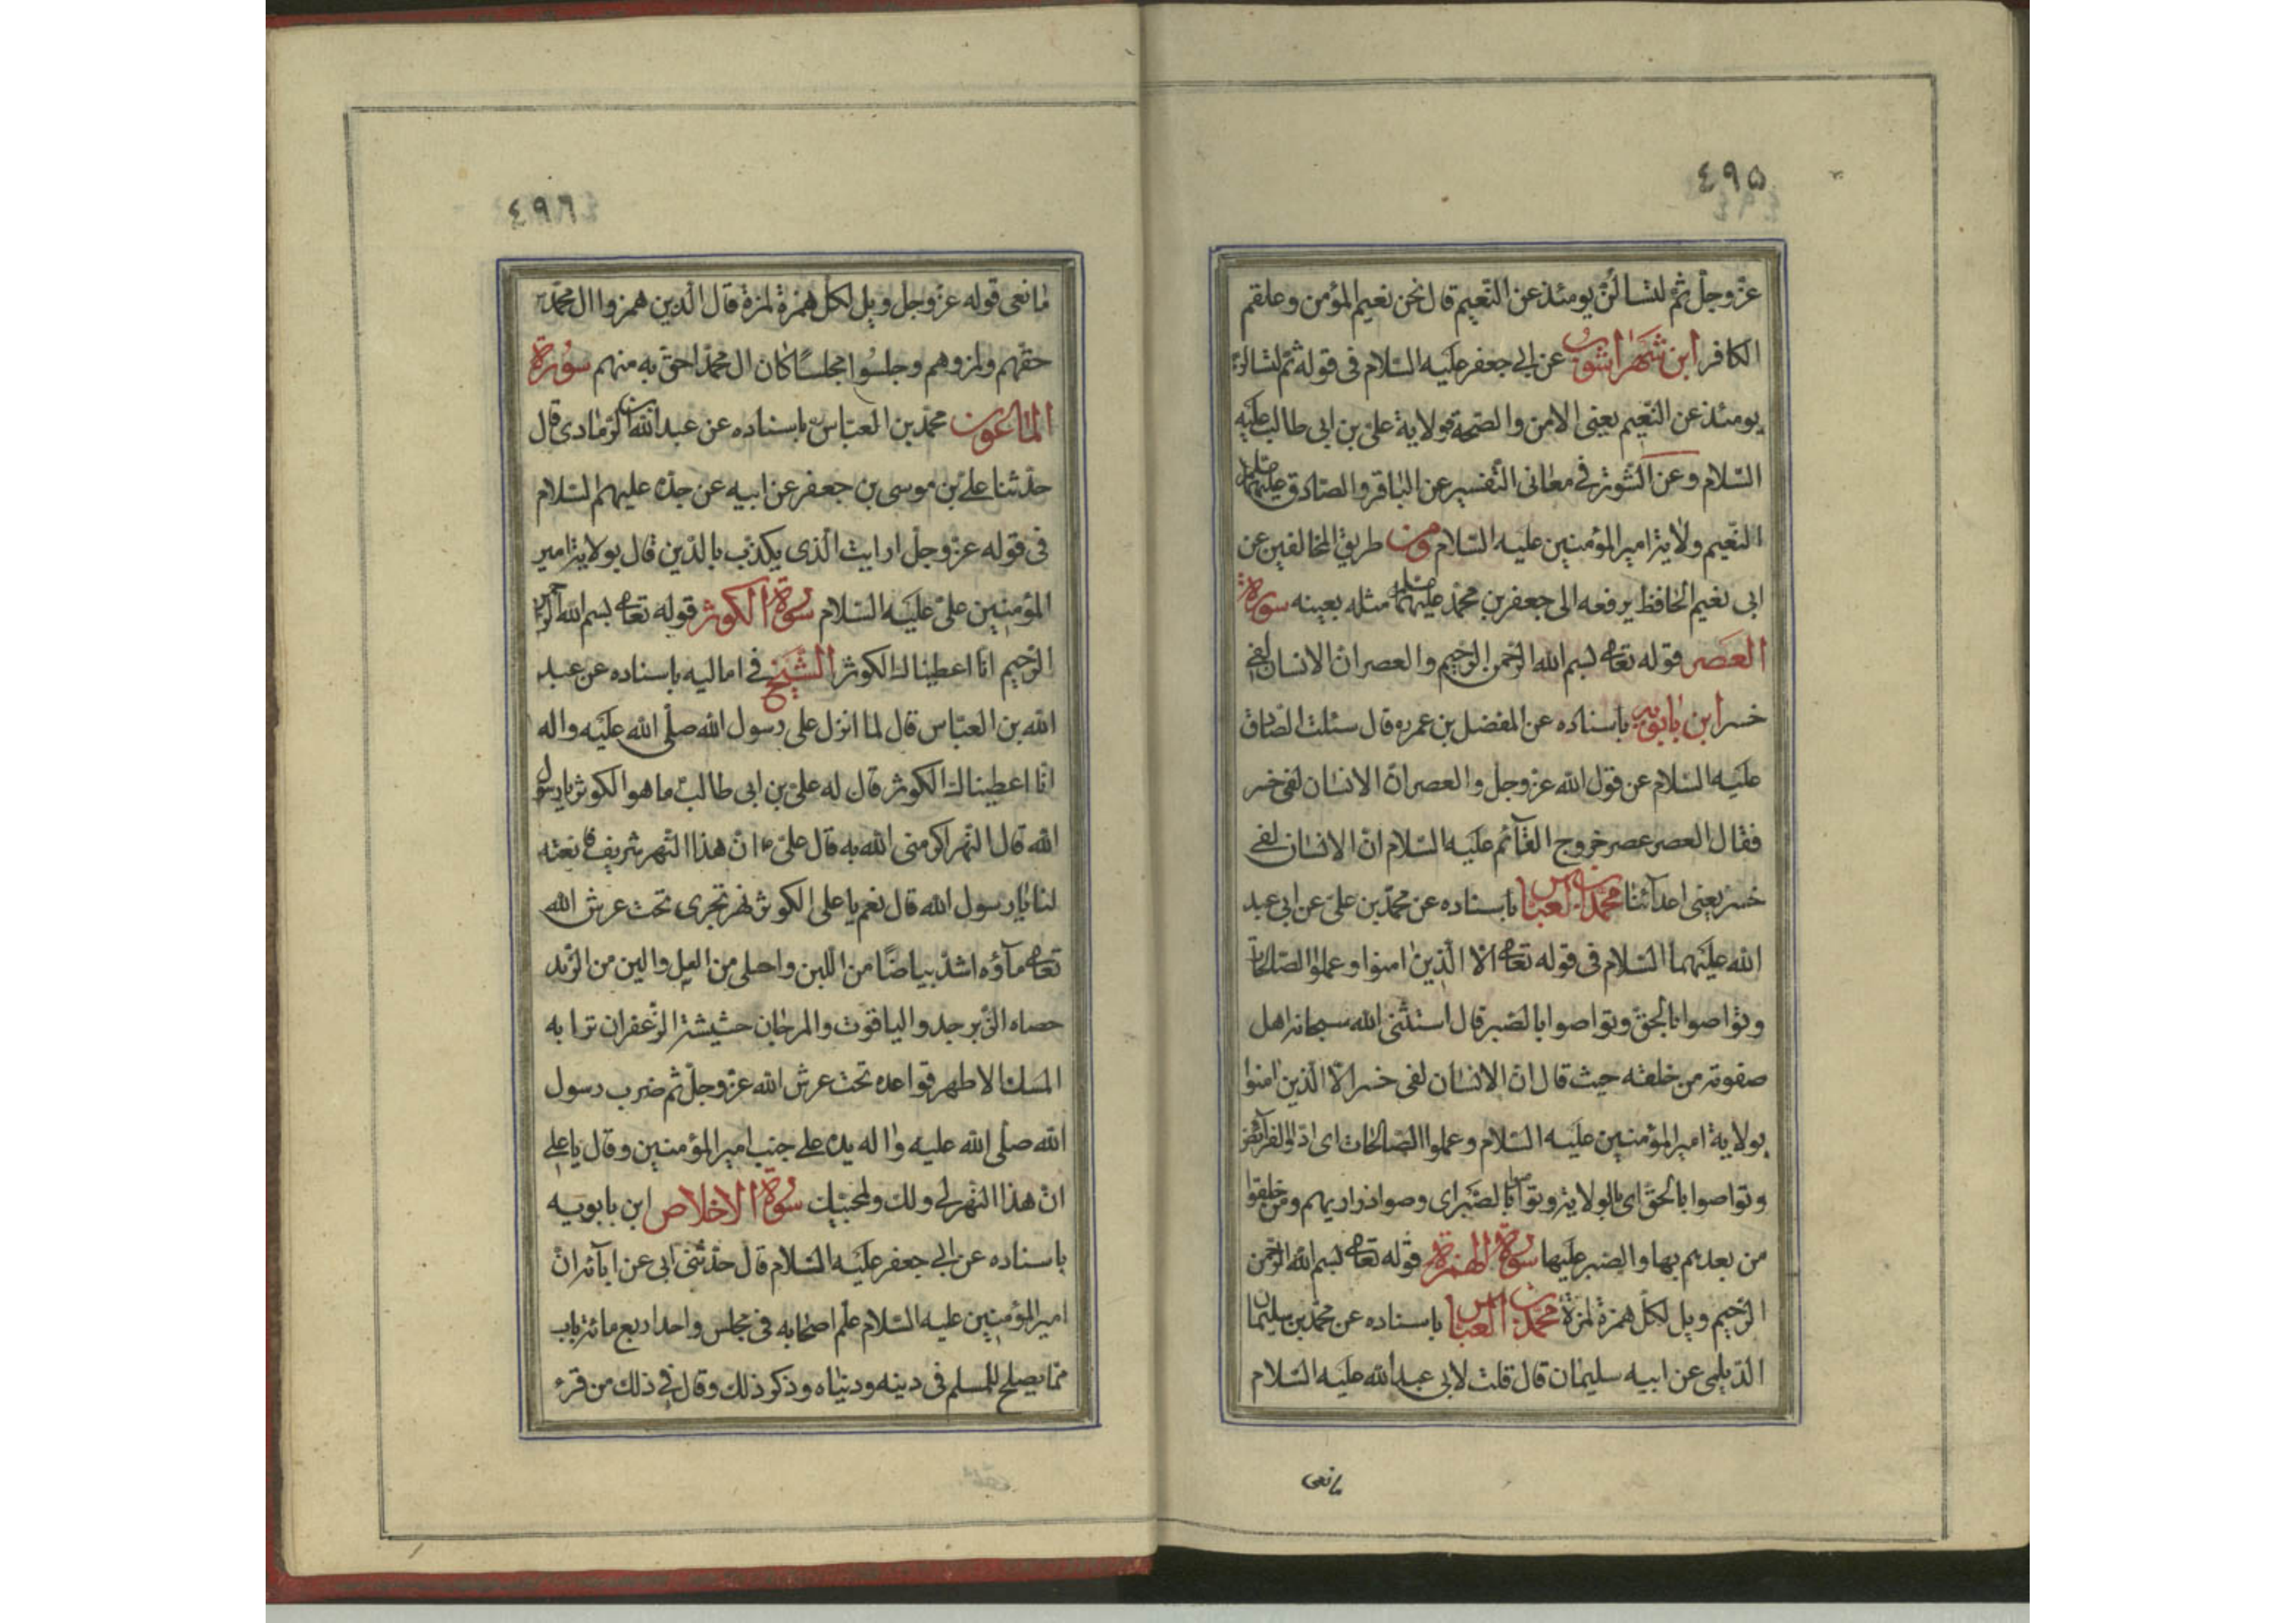 ٤٩٥
عزّ وجلّ ثمّ لتسألنّ يومئذ عن النّعيم قال نحن نعيم المؤمن وعلقم
الكافر ابن شهراشوب عن ابي جعفر عليه السّلام فى قوله ثمّ لتسالنّ
يومئذ عن النّعيم يعنى الامن والصّحة وولاية علىّ بن ابى طالب عليه
السّلام وعن التّنوير فى معانى التّفسير عن الباقر والصّادق عليهما
النّعيم ولاية امير المؤمنين عليه السّلام ومن طريق المخالفين عن
ابى نعيم الحافظ يرفعه الى جعفر بن محمّد عليهما مثله بعينه سورة
العصر قوله تعالى بسم الله الرّحمن الرّحيم والعصر انّ الانسان لفى
خسر ابن بابويه باسناده عن المفضل بن عمر قال سئلت الصّادق
عليه السّلام عن قول الله عزّ وجلّ والعصر انّ الانسان لفى خسر
فقال العصر عصر خروج القآئم عليه السّلام انّ الانسان لفى
خسر يعنى اعدآئنا محمّد بن العباس باسناده عن محمّد بن علىّ عن ابى عبد
الله عليهما السّلام فى قوله تعالى الّا الّذين امنوا وعملوا الصّالحات
وتواصوا بالحقّ وتواصوا بالصّبر قال استثنى الله سبحانه اهل
صفوته من خلقه حيث قال انّ الانسان لفى خسر الّا الّذين امنوا
بولاية امير المؤمنين عليه السّلام وعملوا الصّالحات اى ادّوا الفرآئض
وتواصوا بالحقّ اى بالولاية وتواصوا بالصّبر اى وصوا ذراريهم ومن خلقوا
من بعدهم بها والصّبر عليها سورة الهمزة قوله تعالى بسم الله الرّحمن
الرّحيم ويل لكلّ همزة لمزة محمّد بن العباس باسناده عن محمّد بن سليمان
الدّيلمى عن ابيه سليمان قال قلت لابى عبد الله عليه السّلام
ما نعى
٤٩٦
ما نعى قوله عزّ وجلّ ويل لكلّ همزة لمزة قال الّذين همزوا ال محمّد
حقّهم ولمزوهم وجلسوا مجلسًا كان ال محمّد احقّ به منهم سورة
الماعون محمّد بن العبّاس باسناده عن عبد الله بن الرّمادى قال
حدّثنا علىّ بن موسى بن جعفر عن ابيه عن جدّه عليهم السّلام
فى قوله عزّ وجلّ ارايت الّذى يكذّب بالدّين قال بولاية امير
المؤمنين علىّ عليه السّلام سورة الكوثر قوله تعالى بسم الله الرّحمن
الرّحيم انّا اعطيناك الكوثر الشّيخ فى اماليه باسناده عن عبد
الله بن العبّاس قال لما انزل على رسول الله صلّى الله عليه واله
انّا اعطيناك الكوثر قال له علىّ بن ابى طالب ما هو الكوثر يا رسول
الله قال النّهر اكرمنى الله به قال علىّ ع انّ هذا النّهر شريف فانعته
لنا يا رسول الله قال نعم يا على الكوثر نهر تجرى تحت عرش الله
تعالى مآؤه اشدّ بياضًا من اللّبن واحلى من العسل والين من الزّبد
حصاه الزّبرجد والياقوت والمرجان حشيشه الزّعفران ترابه
المسك الاطهر قواعده تحت عرش الله عزّ وجلّ ثمّ ضرب رسول
الله صلّى الله عليه واله يده على جنب امير المؤمنين وقال يا على
انّ هذا النّهر لى ولك ولمحبّيك سورة الاخلاص ابن بابويه
باسناده عن ابى جعفر عليه السّلام قال حدّثنى ابى عن ابآئه انّ
امير المؤمنين عليه السّلام علّم اصحابه فى مجلس واحد اربع مائة باب
ممّا يصلح للمسلم فى دينه ودنياه وذكر ذلك وقال فى ذلك من قرء